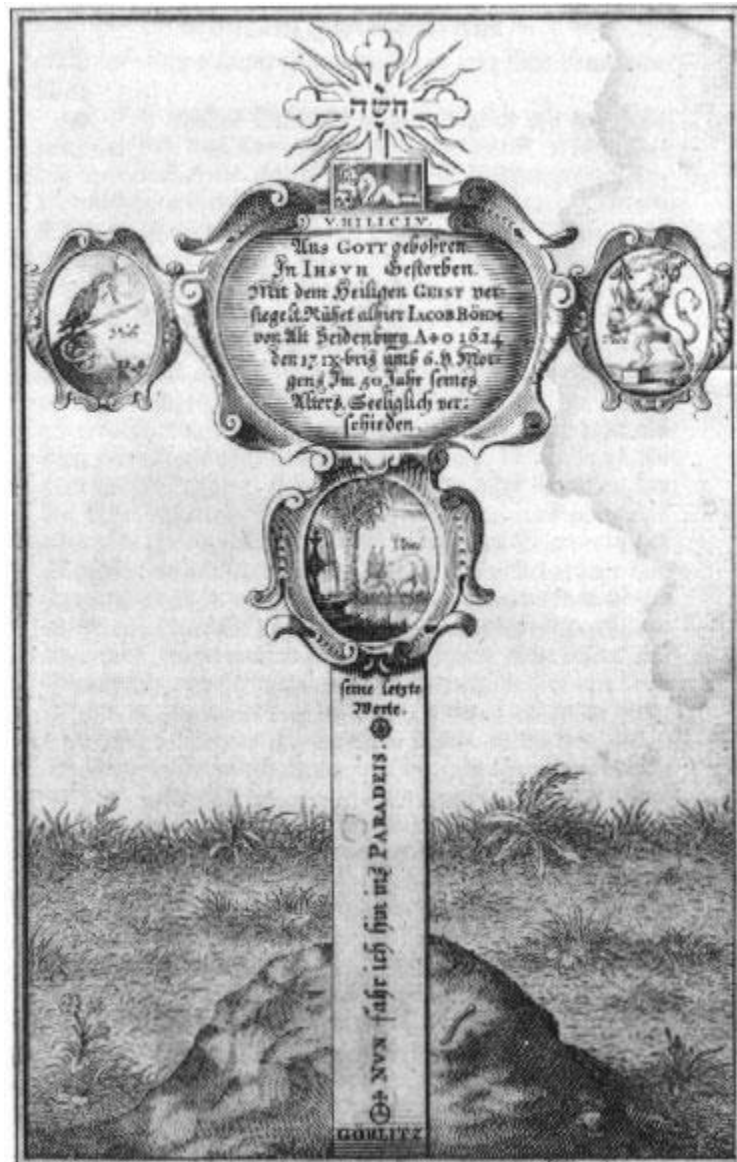 Aus GOTT gebohren
In IHSVH Gestorben.
Mit dem Heiligen GEIST ver-
siegelt. Ruhet alhier IACOB BÖHM
von Alt Seidenburg A+o 1624
den 17 IX-bris umb 6. H Mor-
gens Im 50 Jahr seines
Alters. Seeliglich ver:
schieden
seine letzte
Werte.
NVN fahr ich hin ins PARADEIS.
GÖRLITZ